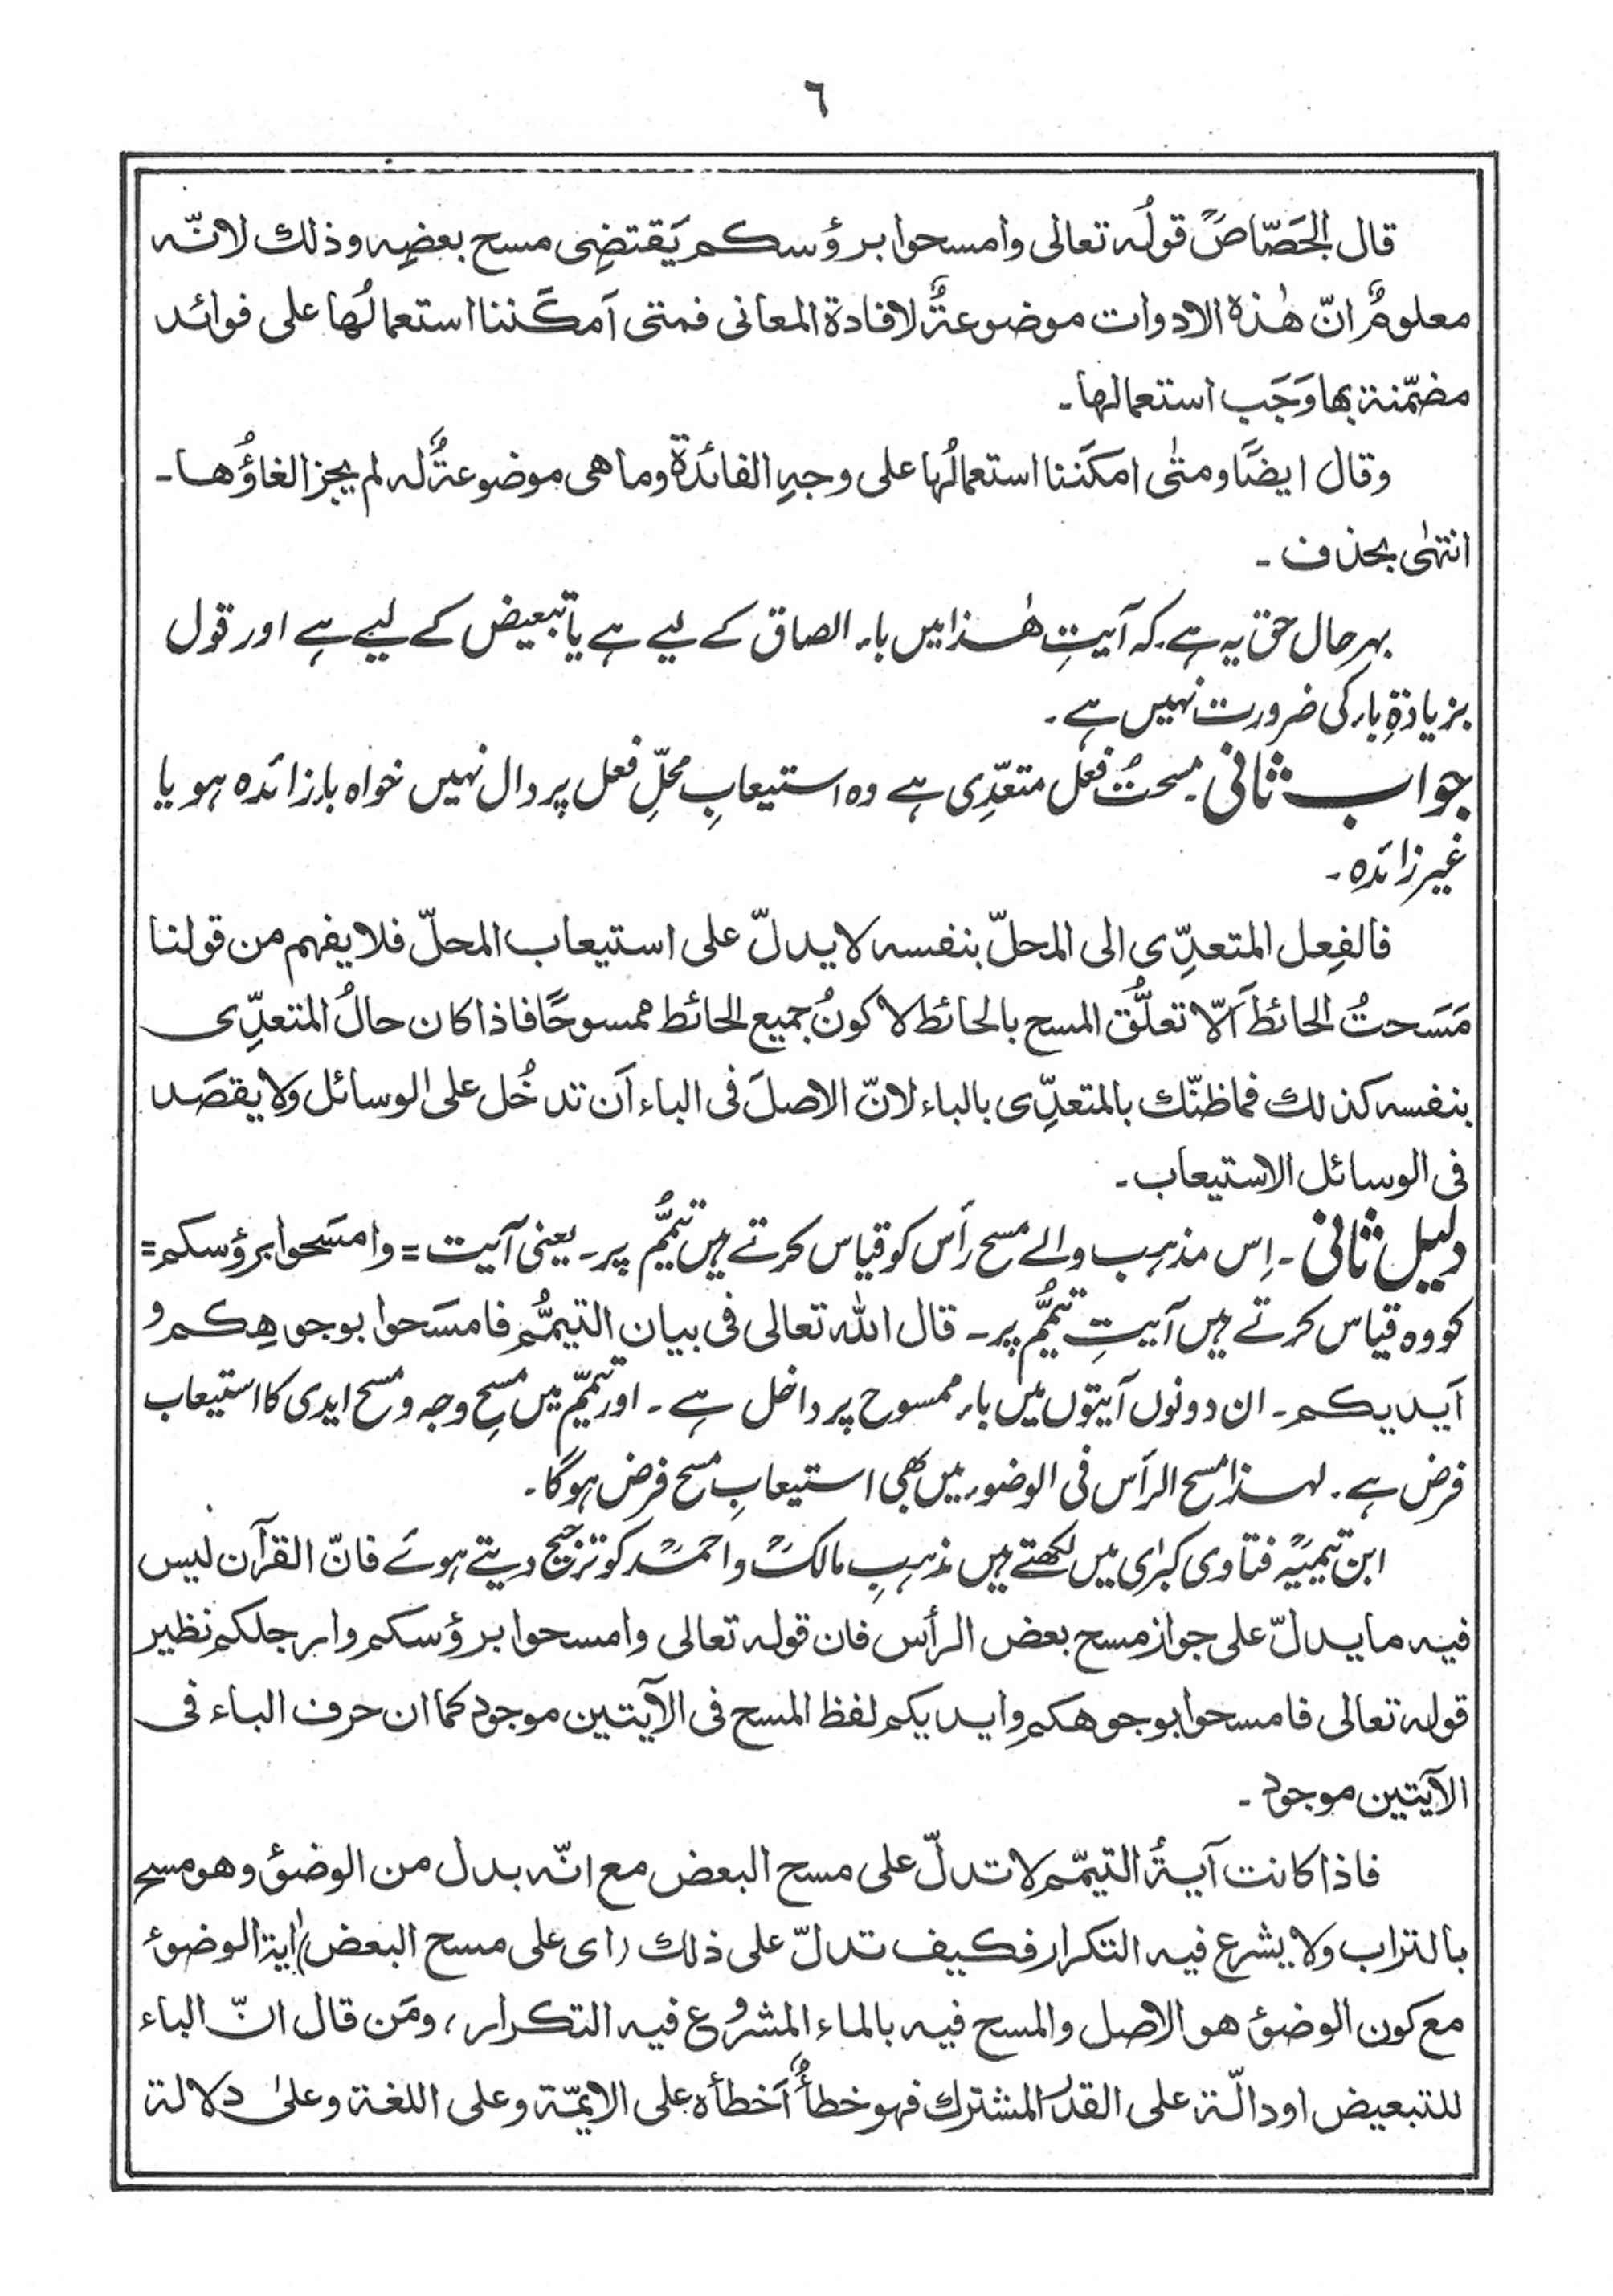 ٦
قال الجَصّاصؒ قولُه تعالی وامسحوا برؤسکم یَقتضِی مسح بعضِه وذلك لانّه
معلومٌ انّ هٰذه الادوات موضوعةٌ لافادة المعانی فمتی اَمکَننا استعمالُها علی فوائد
مضمّنة بها وَجَب استعمالها۔
وقال ایضًا ومتٰی امکَننا استعمالُها علی وجهِ الفائدة وما هی موضوعةٌ له لم یجز الغاؤُها۔
انتهٰی بحذف ۔
بہرحال حق یہ ہے کہ آیتِ ھٰذا میں باء الصاق کے لیے ہے یا تبعیض کے لیے ہے اور قول
بزیادۃِ باء کی ضرورت نہیں ہے ۔
جواب ثانی ۔ مسحتُ فعل متعدِّی ہے وہ استیعابِ محلِّ فعل پر دال نہیں خواہ باء زائدہ ہو یا
غیر زائدہ ۔
فالفِعل المتعدِّی الی المحلّ بنفسه لا یدلّ علی استیعاب المحلّ فلا یفهم من قولنا
مَسَحتُ الحائطَ اَلّا تعلُّق المسح بالحائط لا کونُ جمیع الحائط ممسوحًا فاذا کان حالُ المتعدِّی
بنفسه کذلك فما ظنّك بالمتعدِّی بالباء لانّ الاصلَ فی الباء اَن تدخُل علی الوسائل ولا یقصَد
فی الوسائل الاستیعاب ۔
دلیل ثانی ۔ اِس مذہب والے مسح رأس کو قیاس کرتے ہیں تیمُّم پر ۔ یعنی آیت = وامسَحوا برؤسکم =
کو وہ قیاس کرتے ہیں آیتِ تیمُّم پر ۔ قال اللہ تعالی فی بیان التیمُّم فامسَحوا بوجوهِکم و
اَیدیکم ۔ ان دونوں آیتوں میں باء ممسوح پر داخل ہے ۔ اور تیمّم میں مسحِ وجہ و مسح ایدی کا استیعاب
فرض ہے ۔ لہٰذا مسح الرأس فی الوضوء میں بھی استیعابِ مسح فرض ہوگا ۔
ابن تیمیہؒ فتاوی کبرٰی میں لکھتے ہیں مذہبِ مالکؒ و احمدؒ کو ترجیح دیتے ہوئے فانّ القرآن لیس
فیه ما یدلّ علی جواز مسح بعض الرأس فان قوله تعالی وامسحوا برؤسکم وارجلکم نظیر
قوله تعالی فامسحوا بوجوهکم وایدیکم لفظ المسح فی الآیتین موجود کما ان حرف الباء فی
الآیتین موجود ۔
فاذا کانت آیةُ التیمّم لا تدلّ علی مسح البعض مع انّه بدل من الوضوٗ وهو مسح
بالتراب ولا یشرع فیه التکرار فکیف تدلّ علی ذلك (ای علی مسح البعض) اٰیة الوضوٗ
مع کون الوضوٗ هو الاصل والمسح فیه بالماء المشروع فیه التکرار، ومَن قال انّ الباء
للتبعیض او دالّة علی القدر المشترك فهو خطأٌ اَخطأه علی الایمّة وعلی اللغة وعلٰی دلالة